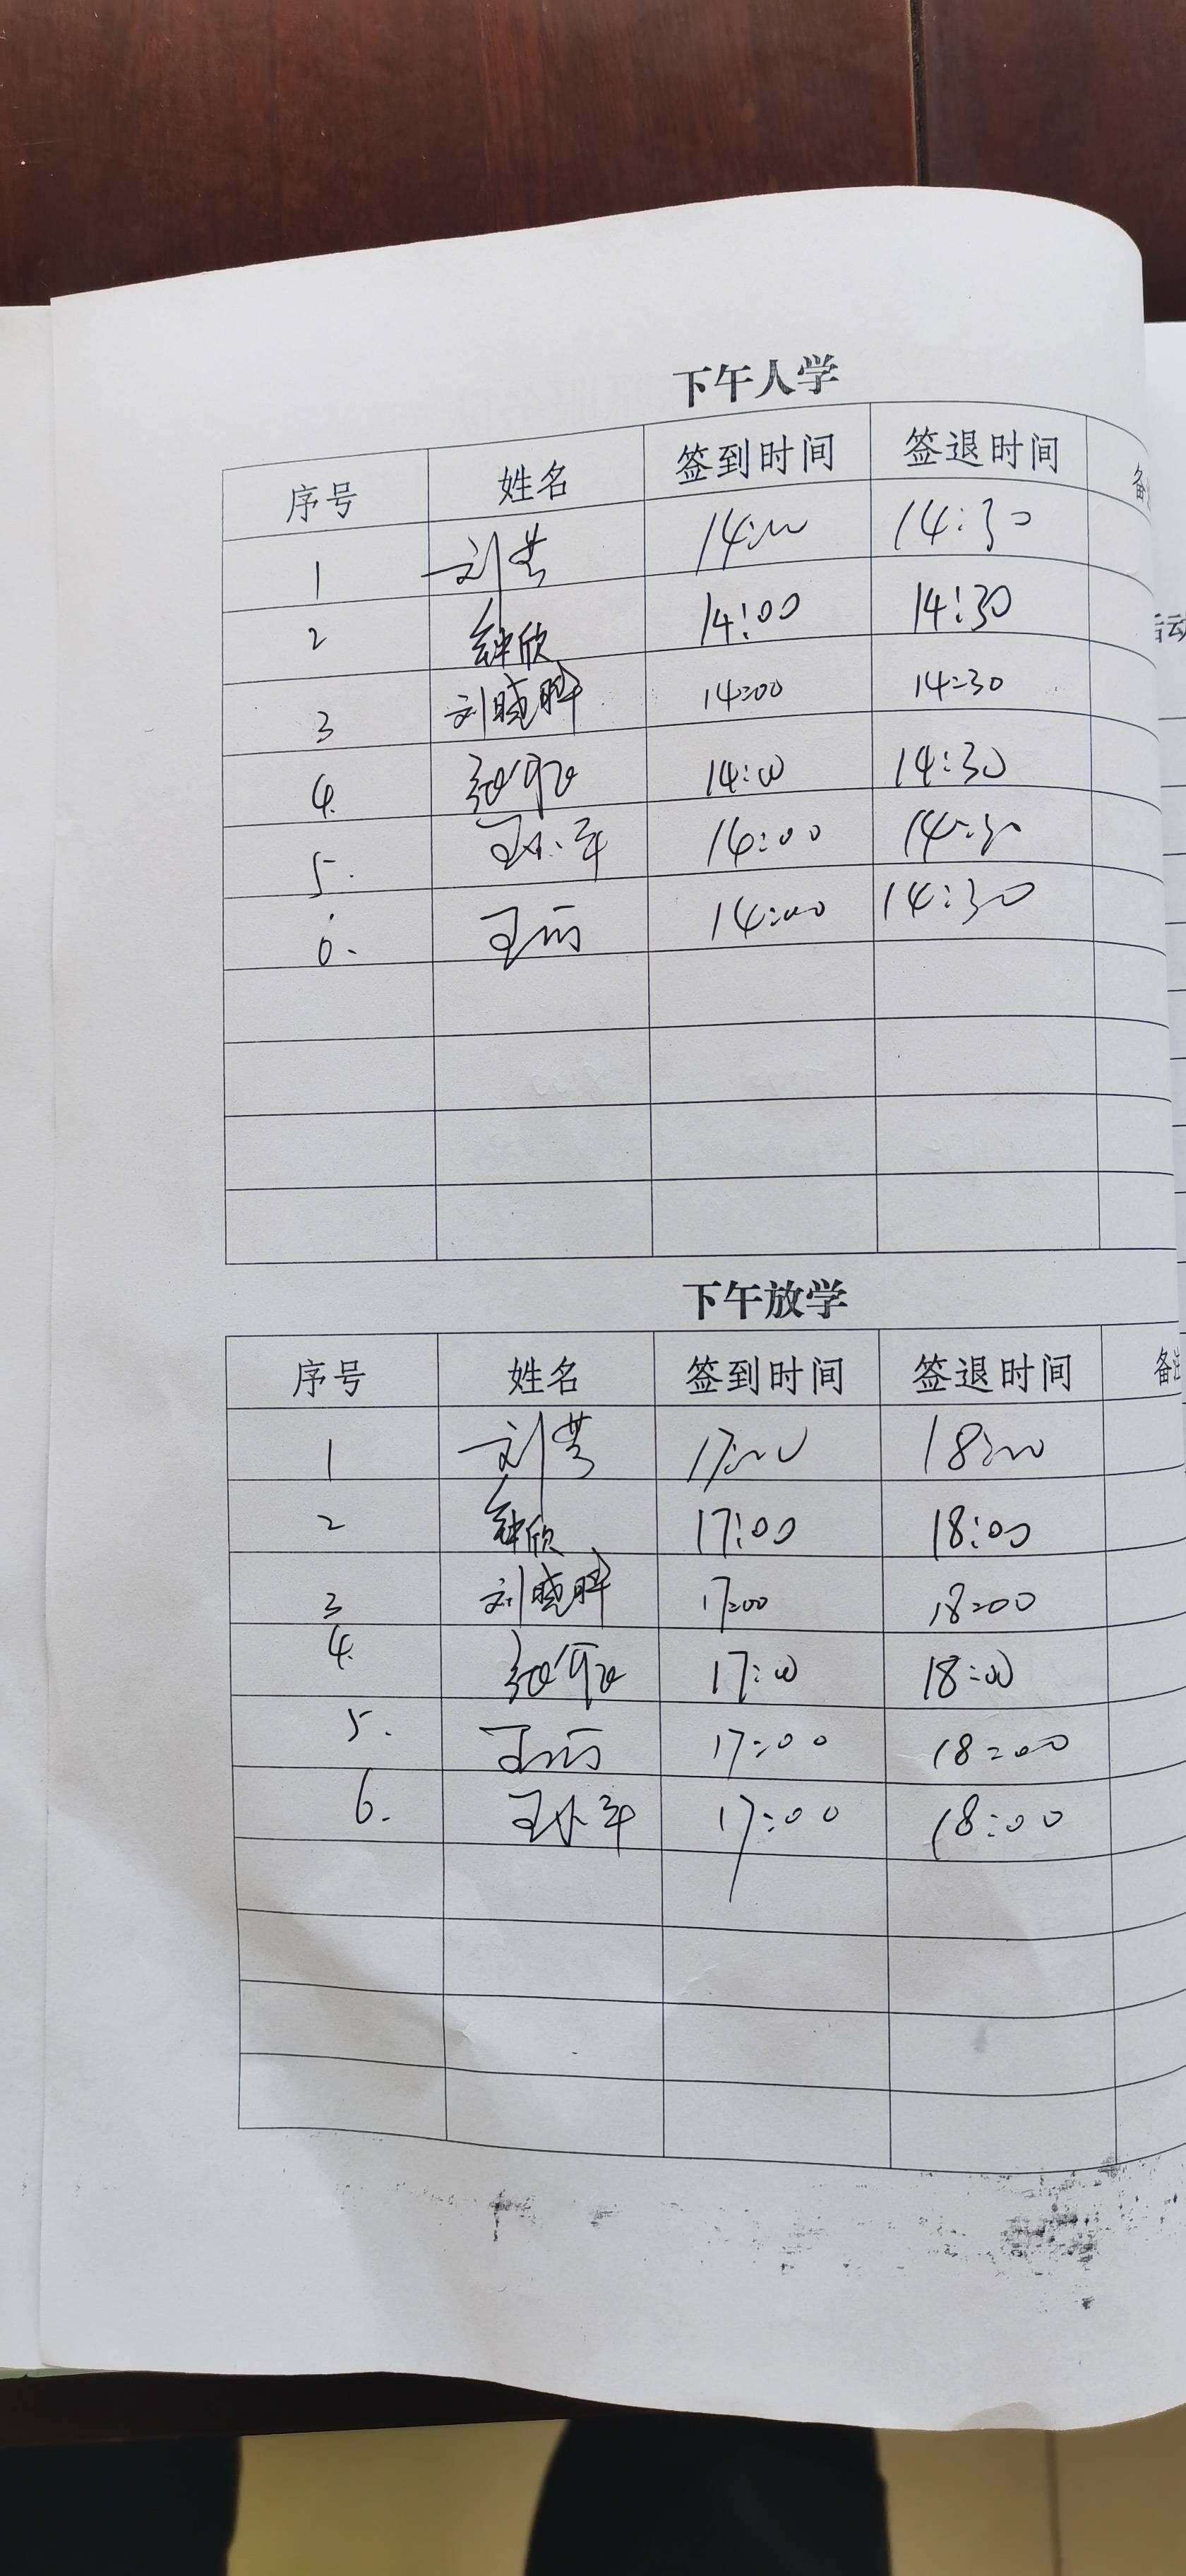 下午入学
序号 姓名 签到时间 签退时间 备
1 刘芸 14:00 14:30
2 钟欣 14:00 14:30
3 刘晓晖 14:00 14:30
4. 14:00 14:30
5. 14:00 14:30
6. 王丽 14:00 14:30
下午放学
序号 姓名 签到时间 签退时间 备注
1 刘芸 17:00 18:00
2 钟欣 17:00 18:00
3 刘晓晖 17:00 18:00
4. 17:00 18:00
5. 王丽 17:00 18:00
6. 17:00 18:00